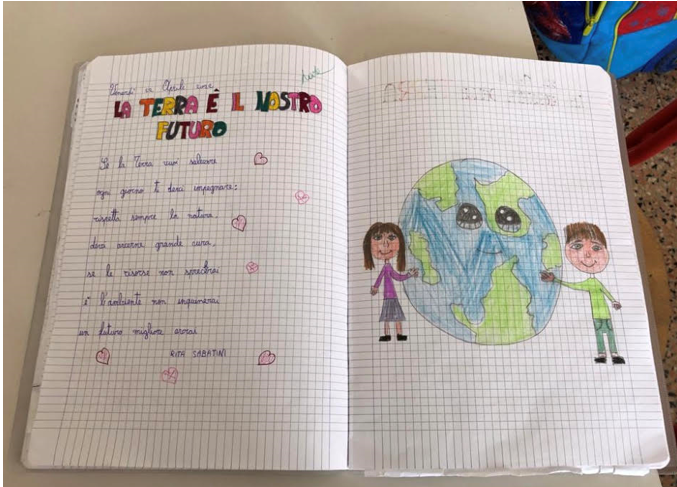 Venerdì 22 Aprile 2022
LA TERRA È IL NOSTRO
FUTURO
Se la Terra vuoi salvare
ogni giorno ti devi impegnare:
rispetta sempre la natura,
devi averne grande cura,
se le risorse non sprecherai
e l'ambiente non inquinerai
un futuro migliore avrai
RITA SABATINI